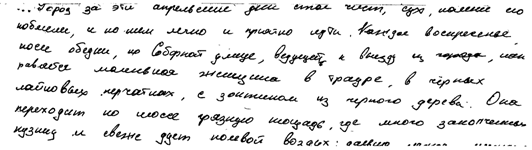 ... Город за эти апрельские дни стал чист, сух, камни его
побелели, и по ним легко и приятно идти. Каждое воскресенье
после обедни, по Соборной улице, ведущей к выезду из города, нап
равляется маленькая женщина в трауре, в чёрных
лайковых перчатках, с зонтиком из черного дерева. Она
переходит по шоссе грязную площадь, где много закопченных
кузниц и свежо дует полевой воздух; дальше